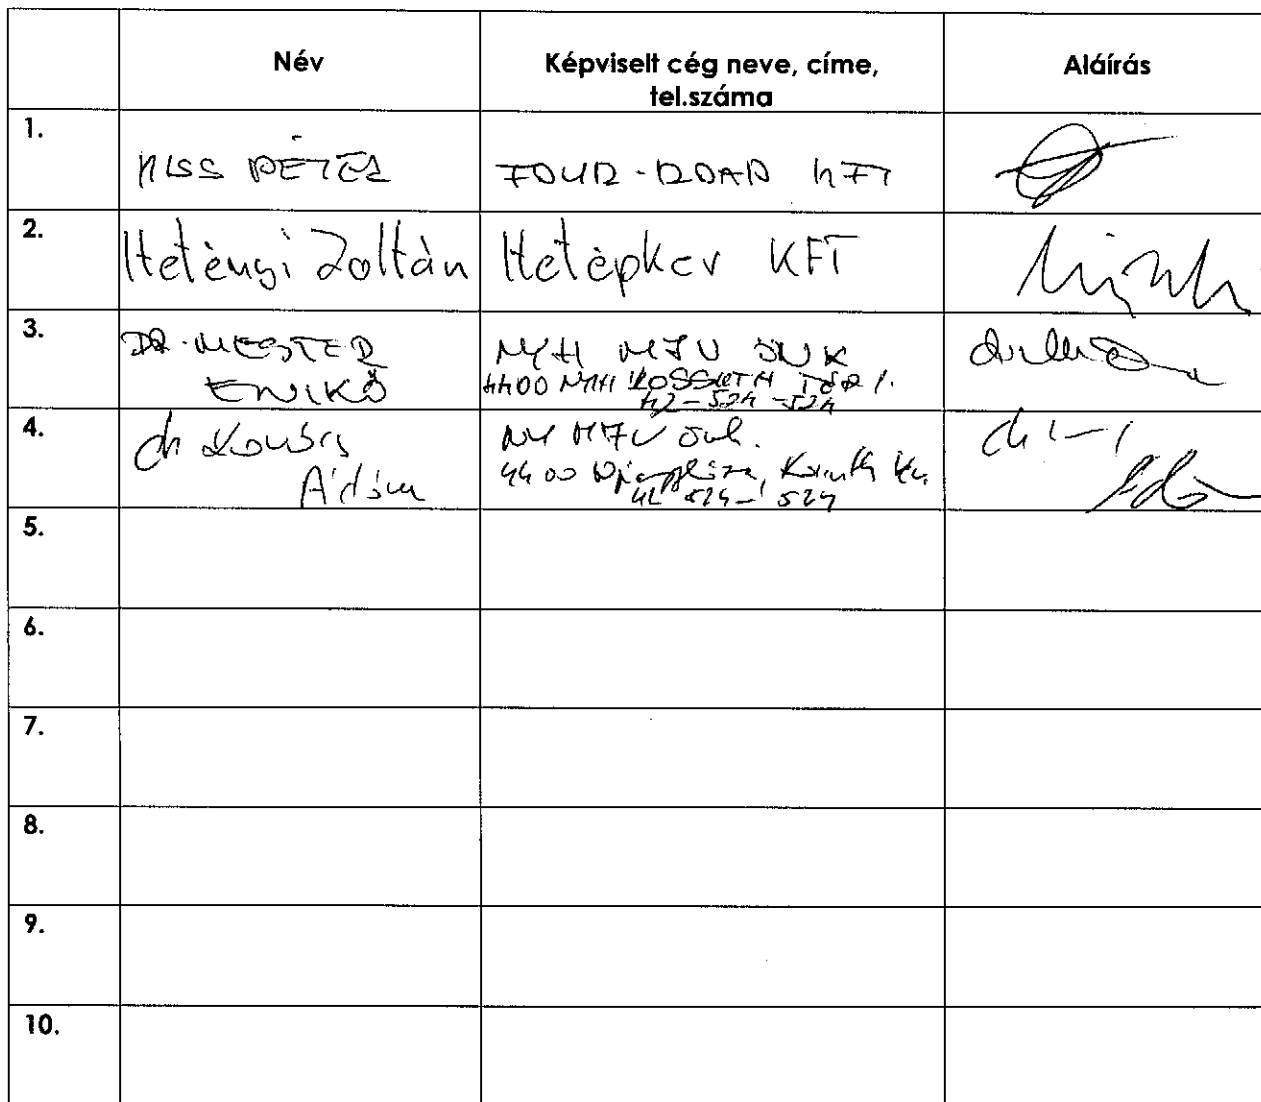 Név
Képviselt cég neve, címe,
tel.száma
Aláírás
1.
KISS PÉTER
FOUR-ROAD KFT
2.
Hetényi Zoltán
Hetépker KFT
3.
DR. MESTER
ENIKŐ
NYH MJV ÖNK
4400 NYH KOSSUTH TÉR 1.
42-524-524
4.
dr Kovács
Ádám
NY MJV Önk.
4400 Nyíregyháza, Kossuth
42 524-524
5.
6.
7.
8.
9.
10.